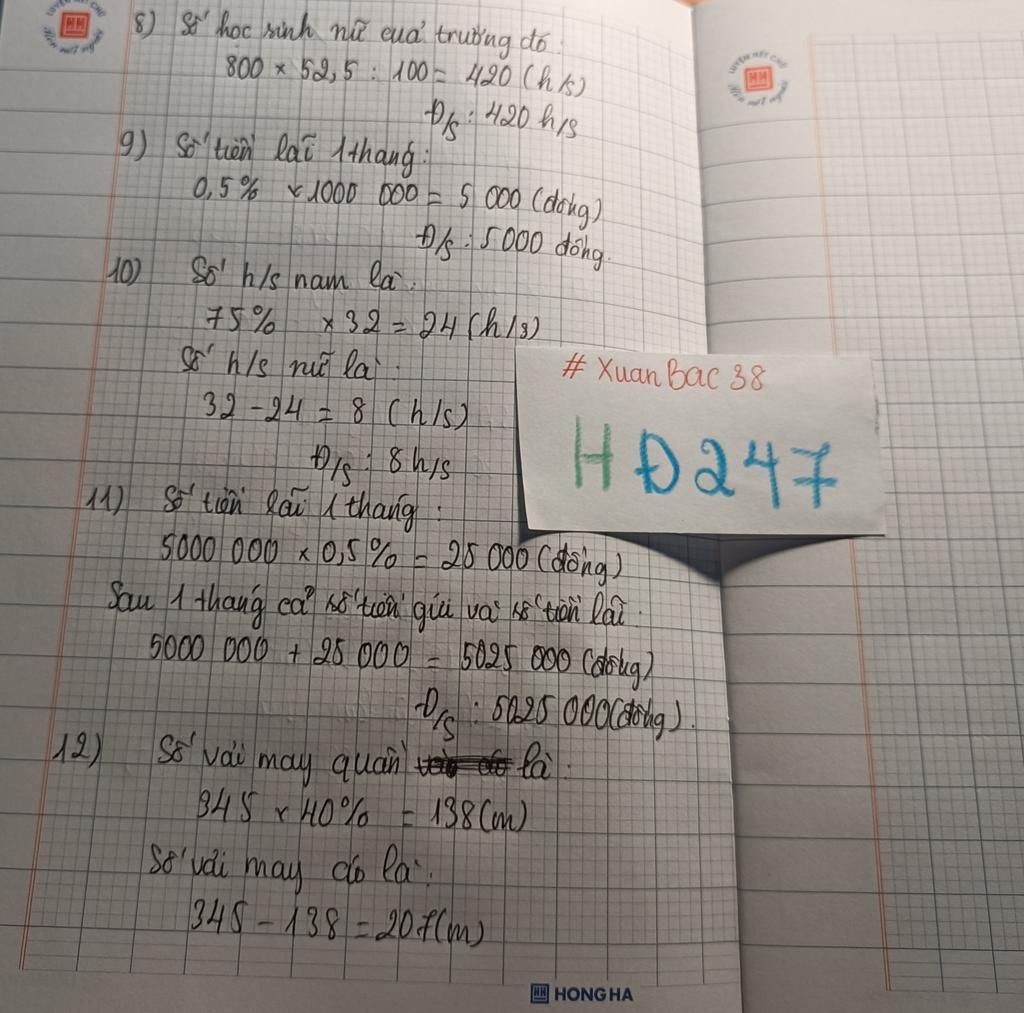 LUYỆN NÉT CHỮ
Rèn nết người
8) Số học sinh nữ của trường đó:
800 × 52,5 : 100 = 420 (h/s)
Đ/s : 420 h/s
9) Số tiền lãi 1 tháng:
0,5% × 1000 000 = 5 000 (đồng)
Đ/s : 5000 đồng.
10) Số h/s nam là:
75% × 32 = 24 (h/s)
Số h/s nữ là:
32 - 24 = 8 (h/s)
Đ/s : 8 h/s
11) Số tiền lãi 1 tháng:
5000 000 × 0,5% = 25 000 (đồng)
Sau 1 tháng cả số tiền gửi và số tiền lãi:
5000 000 + 25 000 = 5025 000 (đồng)
Đ/s : 5025 000 (đồng).
12) Số vải may quần là:
345 × 40% = 138 (m)
Số vải may áo là:
345 - 138 = 207 (m)
HH HONG HA
# Xuan Bac 38
HĐ247
LUYỆN NÉT CHỮ
HH
Rèn nết người